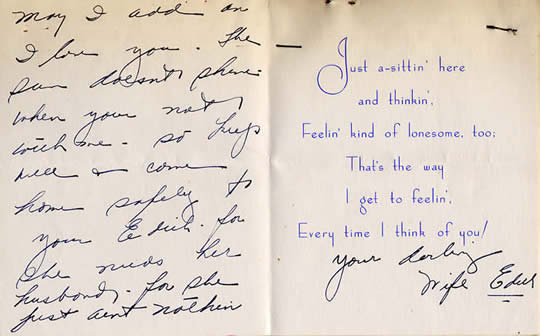 may I add on
I love you. The
sun doesn't shine
when your not
with me - so keep
well & come
home safely to
your Edith. for
she needs her
husband. for she
just aint nothin
Just a-sittin' here
and thinkin',
Feelin' kind of lonesome, too;
That's the way
I get to feelin',
Every time I think of you!
your darling
Wife Edith